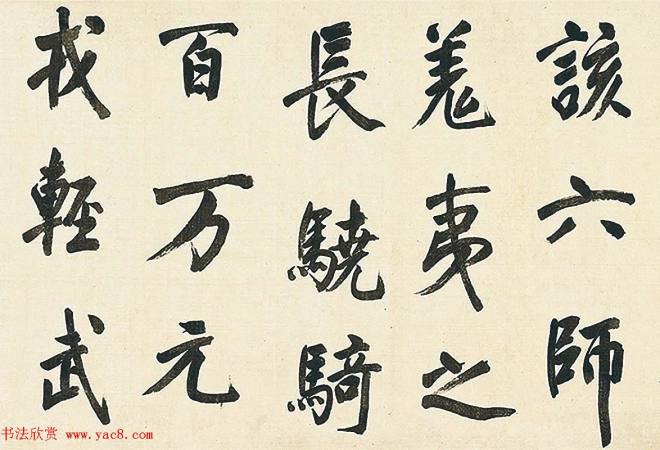 該六師
羗夷之
長驍騎
百万元
戎輕武
书法欣赏 www.yac8.com